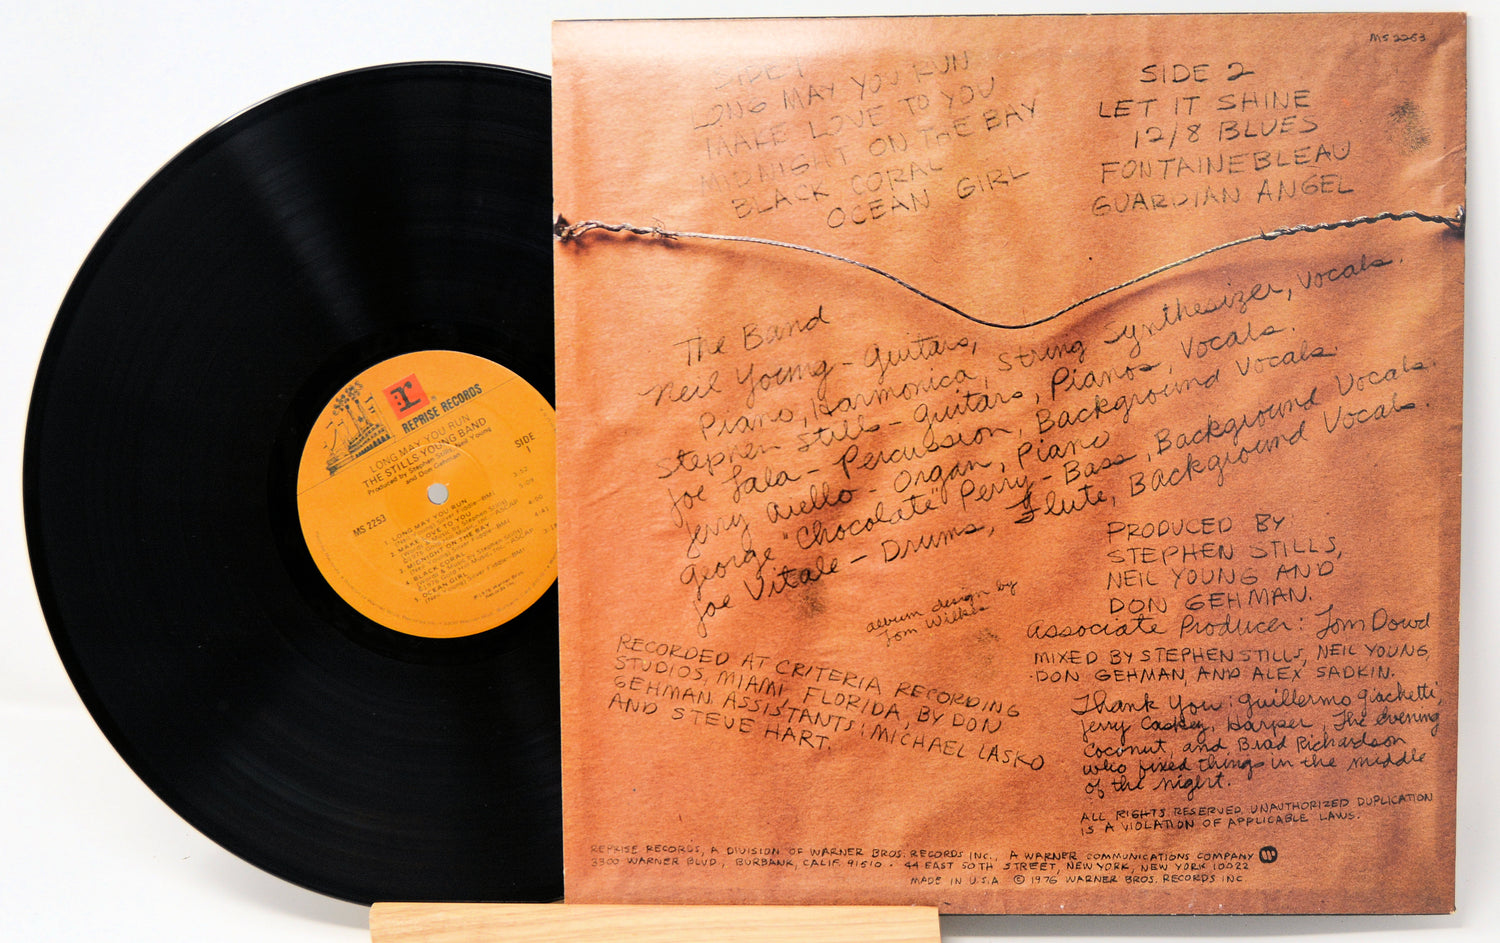 MS 2253
SIDE 1
LONG MAY YOU RUN
MAKE LOVE TO YOU
MIDNIGHT ON THE BAY
BLACK CORAL
OCEAN GIRL
SIDE 2
LET IT SHINE
12/8 BLUES
FONTAINEBLEAU
GUARDIAN ANGEL
The Band
Neil Young - Guitars,
Piano, Harmonica, String Synthesizer, Vocals.
Stephen Stills - Guitars, Pianos, Vocals.
Joe Lala - Percussion, Background Vocals.
Jerry Aiello - Organ, Piano
George "Chocolate" Perry - Bass, Background Vocals.
Joe Vitale - Drums, Flute, Background Vocals.
album design by
Tom Wilkes
RECORDED AT CRITERIA RECORDING
STUDIOS, MIAMI FLORIDA, BY DON
GEHMAN. ASSISTANTS: MICHAEL LASKO
AND STEVE HART.
PRODUCED BY
STEPHEN STILLS,
NEIL YOUNG AND
DON GEHMAN.
Associate Producer: Tom Dowd
MIXED BY STEPHEN STILLS, NEIL YOUNG,
DON GEHMAN, AND ALEX SADKIN.
Thank You: Guillermo Giachetti,
Jerry Caskey, Harper, The evening
Coconut, and Brad Richardson
who fixed things in the middle
of the night.
ALL RIGHTS RESERVED. UNAUTHORIZED DUPLICATION
IS A VIOLATION OF APPLICABLE LAWS.
REPRISE RECORDS, A DIVISION OF WARNER BROS. RECORDS INC., A WARNER COMMUNICATIONS COMPANY
3300 WARNER BLVD., BURBANK, CALIF. 91510 · 44 EAST 50TH STREET, NEW YORK, NEW YORK 10022
MADE IN U.S.A. © 1976 WARNER BROS. RECORDS INC
r
REPRISE RECORDS
LONG MAY YOU RUN
THE STILLS YOUNG BAND
Produced by Stephen Stills, Neil Young
and Don Gehman
SIDE
1
MS 2253
1. LONG MAY YOU RUN 3:52
(Neil Young) Silver Fiddle-BMI
2. MAKE LOVE TO YOU 5:09
3. MIDNIGHT ON THE BAY 4:00
(Neil Young) Silver Fiddle-BMI
4. BLACK CORAL 4:41
5. OCEAN GIRL
(Neil Young) Silver Fiddle-BMI